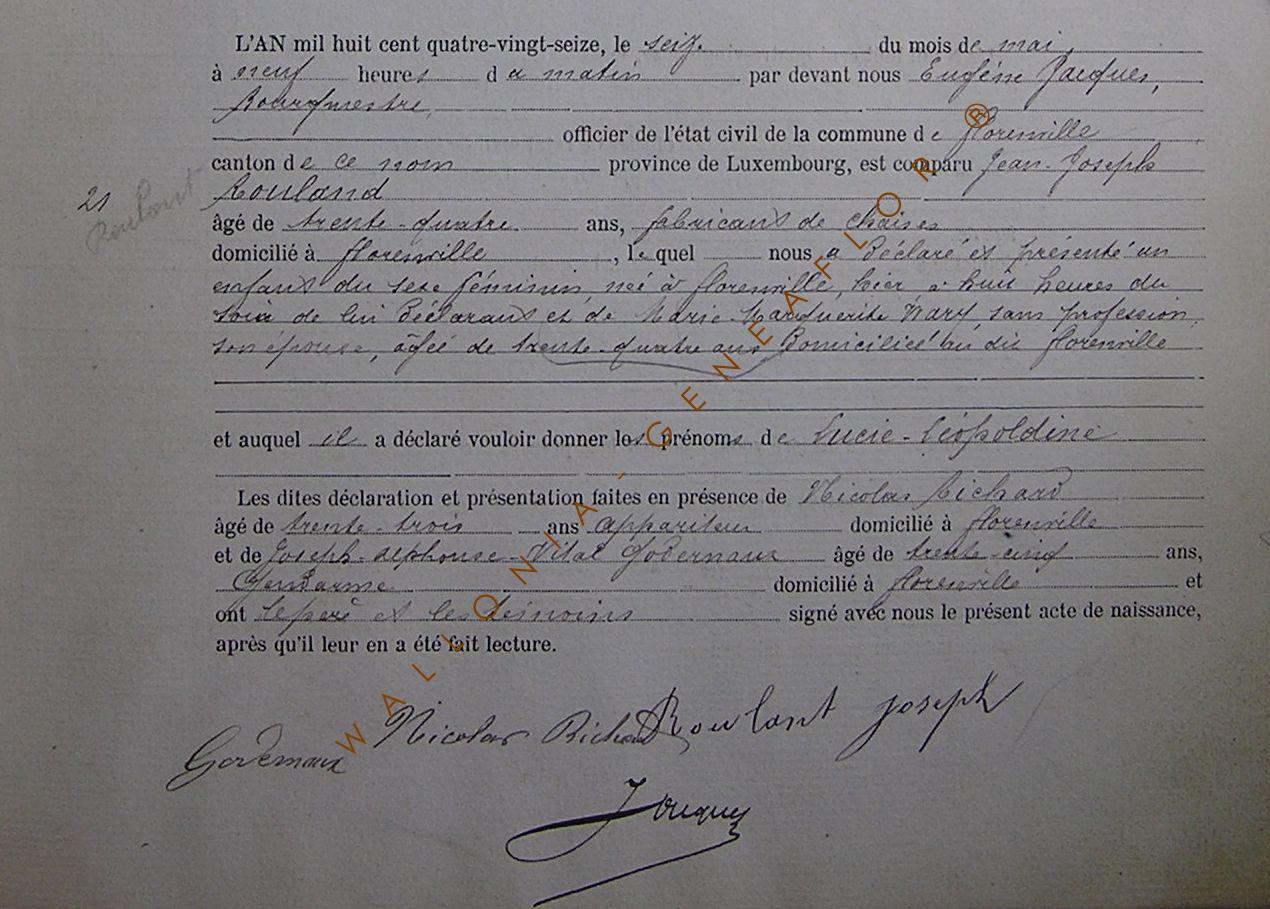 L'AN mil huit cent quatre-vingt-seize, le seize du mois de mai,
à neuf heures du matin par devant nous Eugène Jacques,
Bourgmestre,
officier de l'état civil de la commune de Florenville
canton de ce nom province de Luxembourg, est comparu Jean-Joseph
21 Roulant Rouland
âgé de trente-quatre ans, fabricant de chaises
domicilié à Florenville, lequel nous a déclaré et présenté un
enfant du sexe féminin, née à Florenville, hier à huit heures du
soir de lui déclarant et de Marie Marguerite Wary, sans profession,
son épouse, âgée de trente-quatre ans domiciliée au dit Florenville
et auquel il a déclaré vouloir donner les prénoms de Lucie-Léopoldine
Les dites déclaration et présentation faites en présence de Nicolas Richard
âgé de trente-trois ans appariteur domicilié à Florenville
et de Joseph-Alphonse-Vital Godernaux âgé de trente-cinq ans,
Gendarme domicilié à Florenville et
ont le père et les témoins signé avec nous le présent acte de naissance,
après qu'il leur en a été fait lecture.
Nicolas Richard Roulant Joseph
Godernaux
Jacques
WALLONIA-GENEAFLOR®